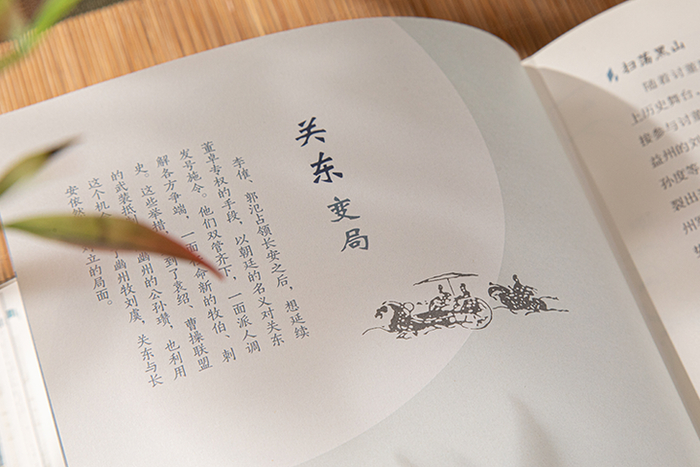 关东变局
李傕、郭汜占领长安之后，想延续
董卓专权的手段，以朝廷的名义对关东
发号施令。他们双管齐下，一面派人调
解各方争端，一面 命新的牧伯、刺
史。这些举措 到了袁绍、曹操联盟
的武装抵 幽州的公孙瓒，也利用
这个机会 了幽州牧刘虞，关东与长
安依 立的局面。
扫荡黑山
随着讨董
上历史舞台、
接参与讨董
益州的刘
孙度等
裂出
州